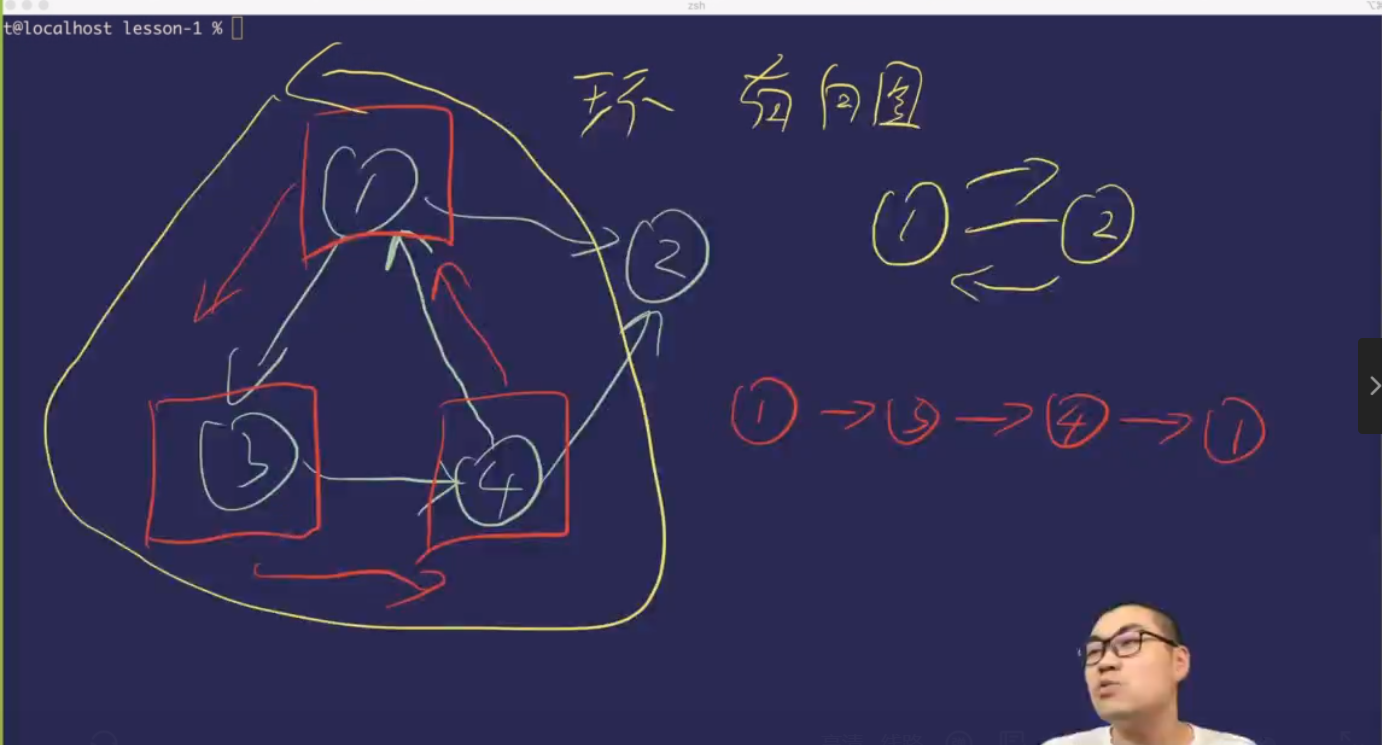 zsh
t@localhost lesson-1 %
环 有向图
① ②
① ②
③ ④
① → ③ → ④ → ①